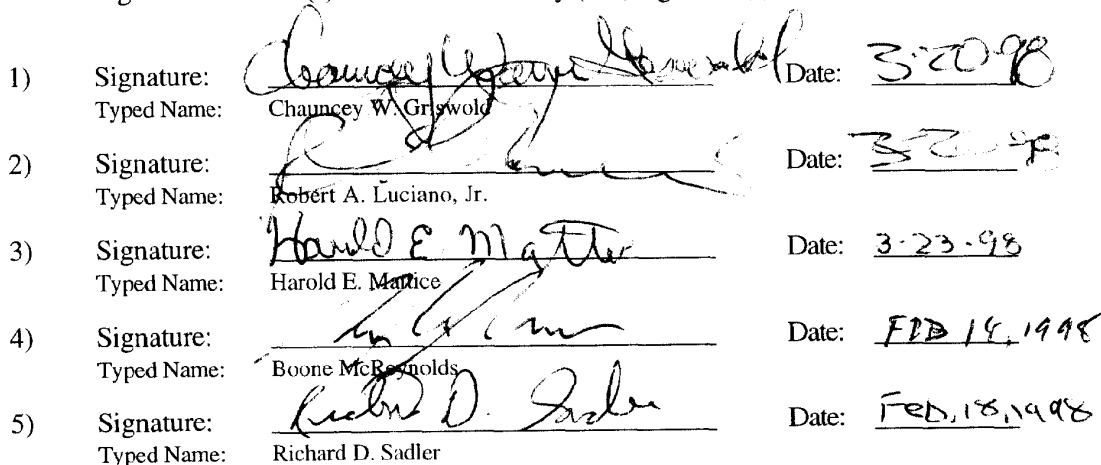 1) Signature: Chauncey Wayne Griswold Date: 3-20-98
Typed Name: Chauncey W. Griswold
2) Signature: Date: 3-20-98
Typed Name: Robert A. Luciano, Jr.
3) Signature: Harold E Mattice Date: 3-23-98
Typed Name: Harold E. Mattice
4) Signature: Date: FEB 14, 1998
Typed Name: Boone McReynolds
5) Signature: Richard D. Sadler Date: FEB, 18, 1998
Typed Name: Richard D. Sadler